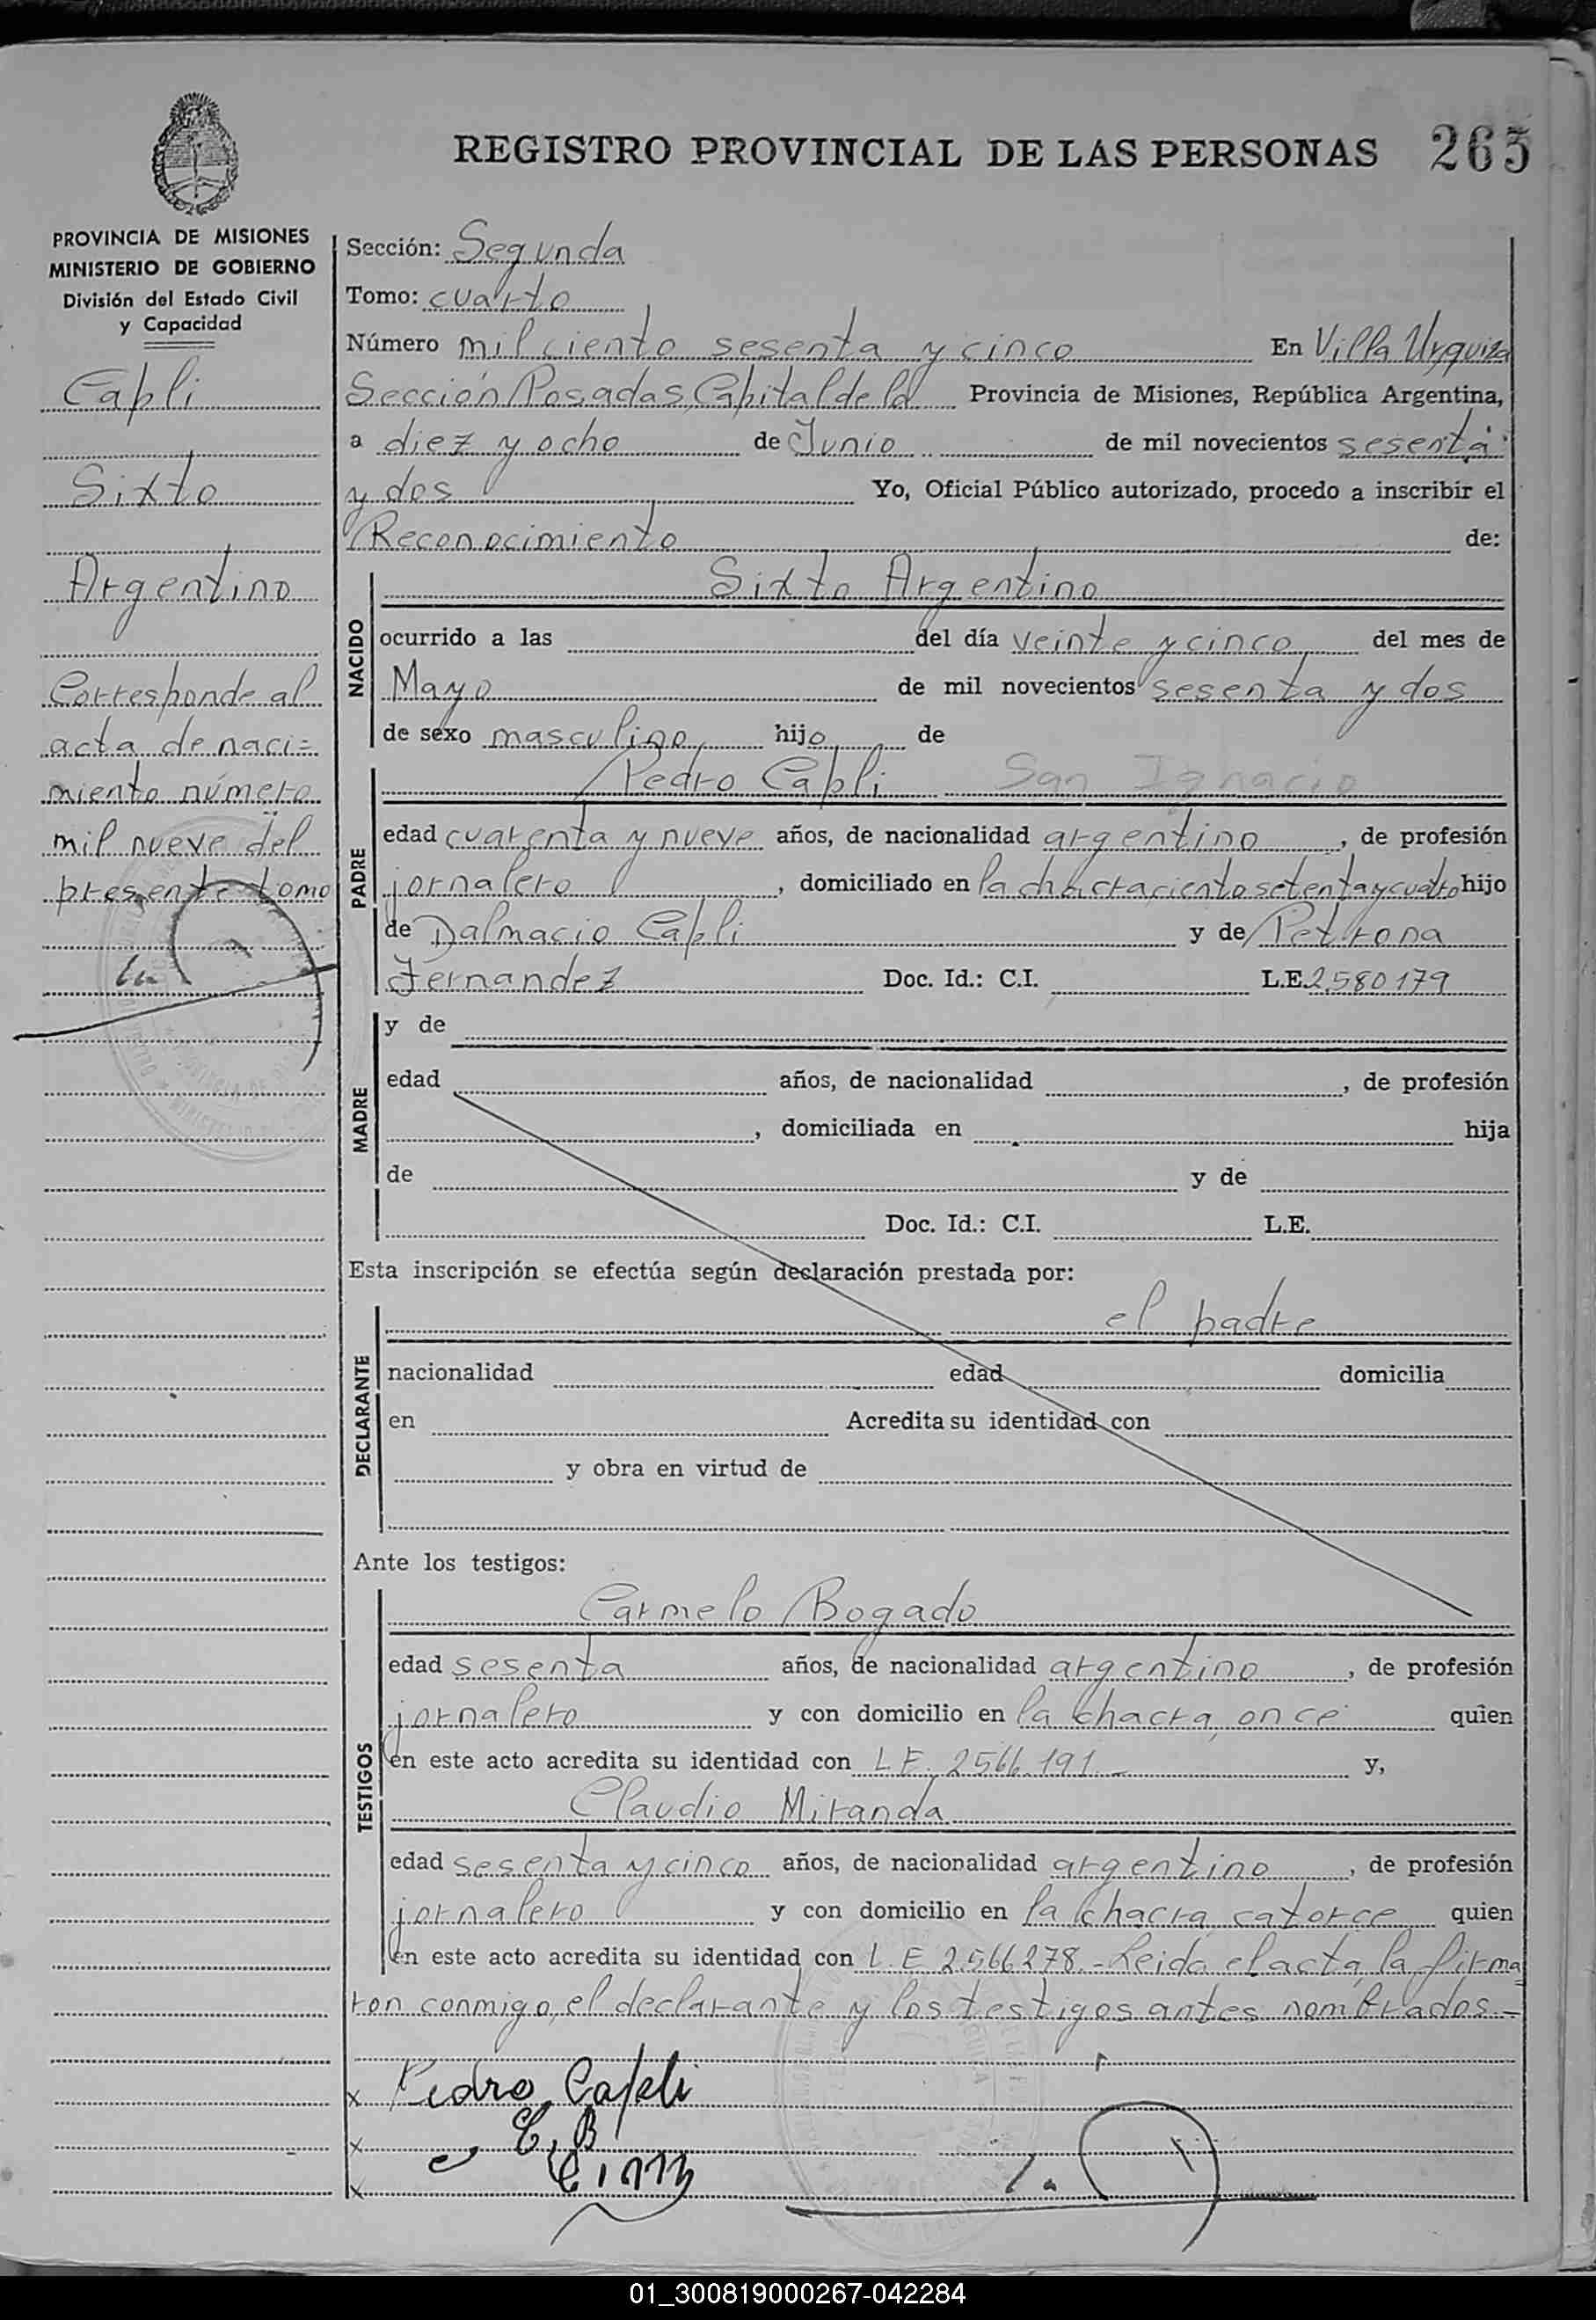 REGISTRO PROVINCIAL DE LAS PERSONAS 265
PROVINCIA DE MISIONES
MINISTERIO DE GOBIERNO
División del Estado Civil
y Capacidad
Capli
Sixto
Argentino
Corresponde al
acta de naci=
miento número
mil nueve del
presente tomo
Sección: Segunda
Tomo: cuarto
Número mil ciento sesenta y cinco En Villa Urquiza
Sección Posadas, Capital de la Provincia de Misiones, República Argentina,
a diez y ocho de Junio de mil novecientos sesenta
y dos Yo, Oficial Público autorizado, procedo a inscribir el
Reconocimiento de:
NACIDO
Sixto Argentino
ocurrido a las del día veinte y cinco del mes de
Mayo de mil novecientos sesenta y dos
de sexo masculino, hijo de
PADRE
Pedro Capli San Ignacio
edad cuarenta y nueve años, de nacionalidad argentino, de profesión
jornalero, domiciliado en la chacra ciento setenta y cuatro hijo
de Dalmacio Capli y de Petrona
Fernandez Doc. Id.: C.I. L.E. 2.580179
MADRE
y de
edad años, de nacionalidad , de profesión
, domiciliada en hija
de y de
Doc. Id.: C.I. L.E.
Esta inscripción se efectúa según declaración prestada por:
DECLARANTE
el padre
nacionalidad edad domicilia
en Acredita su identidad con
y obra en virtud de
Ante los testigos:
TESTIGOS
Carmelo Bogado
edad sesenta años, de nacionalidad argentino, de profesión
jornalero y con domicilio en la chacra, once quien
en este acto acredita su identidad con L.E. 2566.191.- y,
Claudio Miranda
edad sesenta y cinco años, de nacionalidad argentino, de profesión
jornalero y con domicilio en la chacra catorce quien
en este acto acredita su identidad con L.E 2.566278.- Leida el acta, la firma
ron conmigo, el declarante y los testigos antes nombrados.=
x Pedro Capli
x C. B
x
01_300819000267-042284